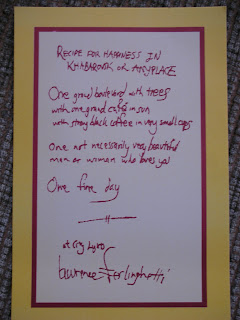 RECIPE FOR HAPPINESS IN
KHABAROVSK OR ANYPLACE
One grand boulevard with trees
with one grand café in sun
with strong black coffee in very small cups
One not necessarily very beautiful
man or woman who loves you
One fine day
at City Lights
Lawrence Ferlinghetti